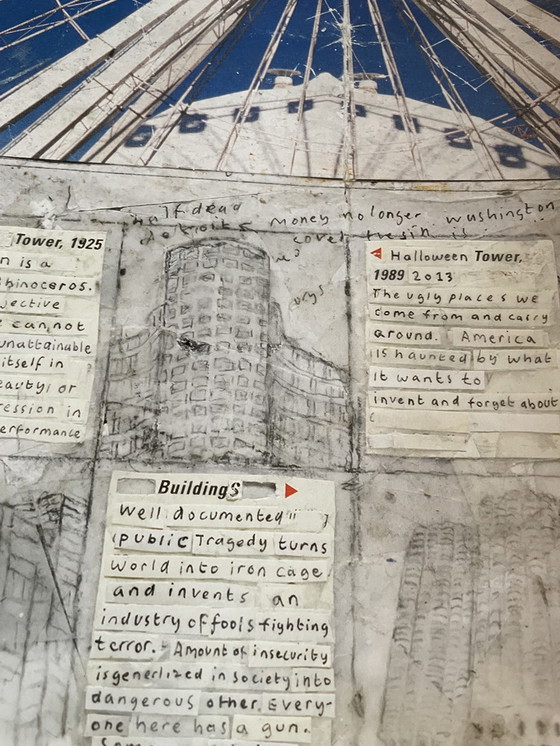 half dead
detroits
money no longer washington
cover
is
Tower, 1925
n is a
hinoceros.
jective
e cannot
unattainable
itself in
eauty, or
ression in
erformance
Halloween Tower,
1989 2013
The ugly places we
come from and carry
around. America
is haunted by what
it wants to
invent and forget about
Buildings
Well documented
public Tragedy turns
world into iron cage
and invents an
industry of fools fighting
terror. - Amount of insecurity
is generlized in society into
dangerous other. Every-
one here has a gun.